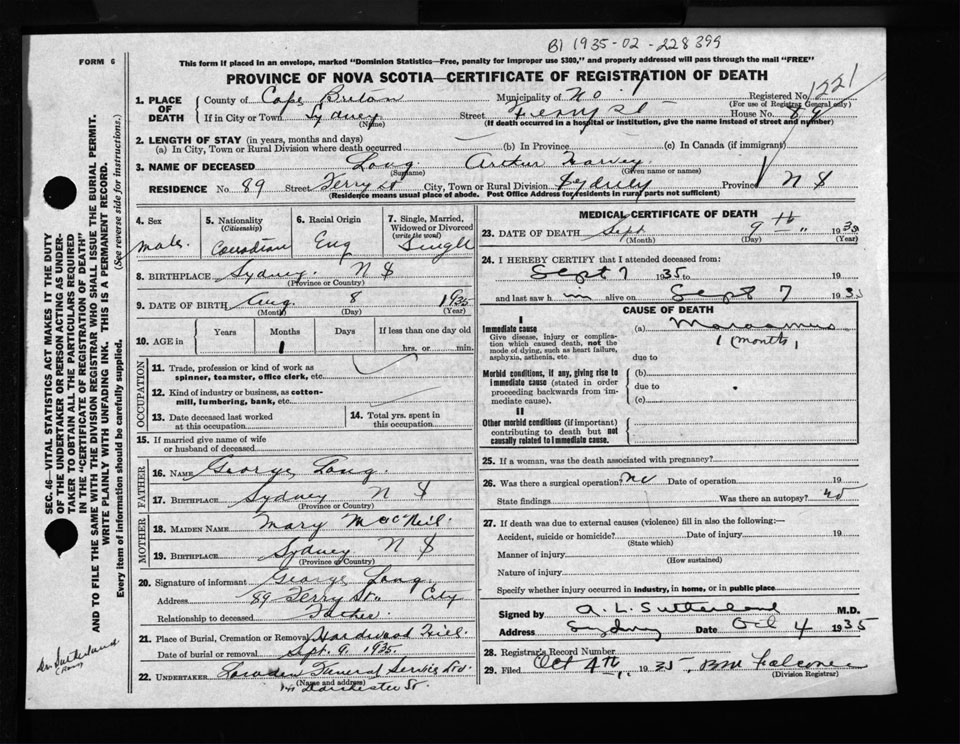 B1 1935-02-228399
FORM 6
This form if placed in an envelope, marked "Dominion Statistics—Free, penalty for improper use $300," and properly addressed will pass through the mail "FREE"
PROVINCE OF NOVA SCOTIA—CERTIFICATE OF REGISTRATION OF DEATH
1221
1. PLACE OF DEATH County of Cape Breton Municipality of No Registered No.
(For use of Registrar General only)
If in City or Town Sydney Street Ferry St House No. 89
(Name) (If death occurred in a hospital or institution, give the name instead of street and number)
2. LENGTH OF STAY (in years, months and days)
(a) In City, Town or Rural Division where death occurred (b) In Province (c) In Canada (if immigrant)
3. NAME OF DECEASED Long Arthur Harvey
(Surname) (Given name or names)
RESIDENCE No. 89 Street Ferry St City, Town or Rural Division Sydney Province N S
(Residence means usual place of abode. Post Office Address for residents in rural parts not sufficient)
4. Sex 5. Nationality (Citizenship) 6. Racial Origin 7. Single, Married, Widowed or Divorced (write the word)
Male Canadian Eng Single
8. BIRTHPLACE Sydney N S
(Province or Country)
9. DATE OF BIRTH Aug 8 1935
(Month) (Day) (Year)
10. AGE in Years Months Days If less than one day old
1 hrs. or min.
OCCUPATION
11. Trade, profession or kind of work as spinner, teamster, office clerk, etc.
12. Kind of industry or business, as cotton-mill, lumbering, bank, etc.
13. Date deceased last worked at this occupation
14. Total yrs. spent in this occupation
15. If married give name of wife or husband of deceased
FATHER
16. NAME George Long
17. BIRTHPLACE Sydney N S
(Province or Country)
MOTHER
18. MAIDEN NAME Mary MacNeil
19. BIRTHPLACE Sydney N S
(Province or Country)
20. Signature of informant George Long
Address 89 Ferry St. City
Relationship to deceased Father
21. Place of Burial, Cremation or Removal Hardwood Hill
Date of burial or removal Sept. 9. 1935.
22. UNDERTAKER Funeral Service Ltd
(Name and address)
Dorchester St.
MEDICAL CERTIFICATE OF DEATH
23. DATE OF DEATH Sept 9th 1935
(Month) (Day) (Year)
24. I HEREBY CERTIFY that I attended deceased from:
Sept 7 1935 to 19
and last saw h im alive on Sept 7 1935
CAUSE OF DEATH
I
Immediate cause
Give disease, injury or complication which caused death, not the mode of dying, such as heart failure, asphyxia, asthenia, etc.
(a) Marasmus
1 (month)
due to
Morbid conditions, if any, giving rise to immediate cause (stated in order proceeding backwards from immediate cause).
(b)
due to
(c)
II
Other morbid conditions (if important) contributing to death but not causally related to immediate cause.
25. If a woman, was the death associated with pregnancy?
26. Was there a surgical operation? no Date of operation 19
State findings Was there an autopsy? no
27. If death was due to external causes (violence) fill in also the following:—
Accident, suicide or homicide? Date of injury 19
(State which)
Manner of injury
(How sustained)
Nature of injury
Specify whether injury occurred in industry, in home, or in public place
Signed by A. L. Sutherland M.D.
Address Sydney Date Oct 4 1935
28. Registrar's Record Number
29. Filed Oct 4th 1935
(Division Registrar)
SEC. 46—VITAL STATISTICS ACT MAKES IT THE DUTY
OF THE UNDERTAKER OR PERSON ACTING AS UNDER-
TAKER TO OBTAIN ALL THE PARTICULARS REQUIRED
IN THE "CERTIFICATE OF REGISTRATION OF DEATH"
AND TO FILE THE SAME WITH THE DIVISION REGISTRAR WHO SHALL ISSUE THE BURIAL PERMIT.
WRITE PLAINLY WITH UNFADING INK. THIS IS A PERMANENT RECORD.
Every item of information should be carefully supplied. (See reverse side for instructions.)
Dr. Sutherland